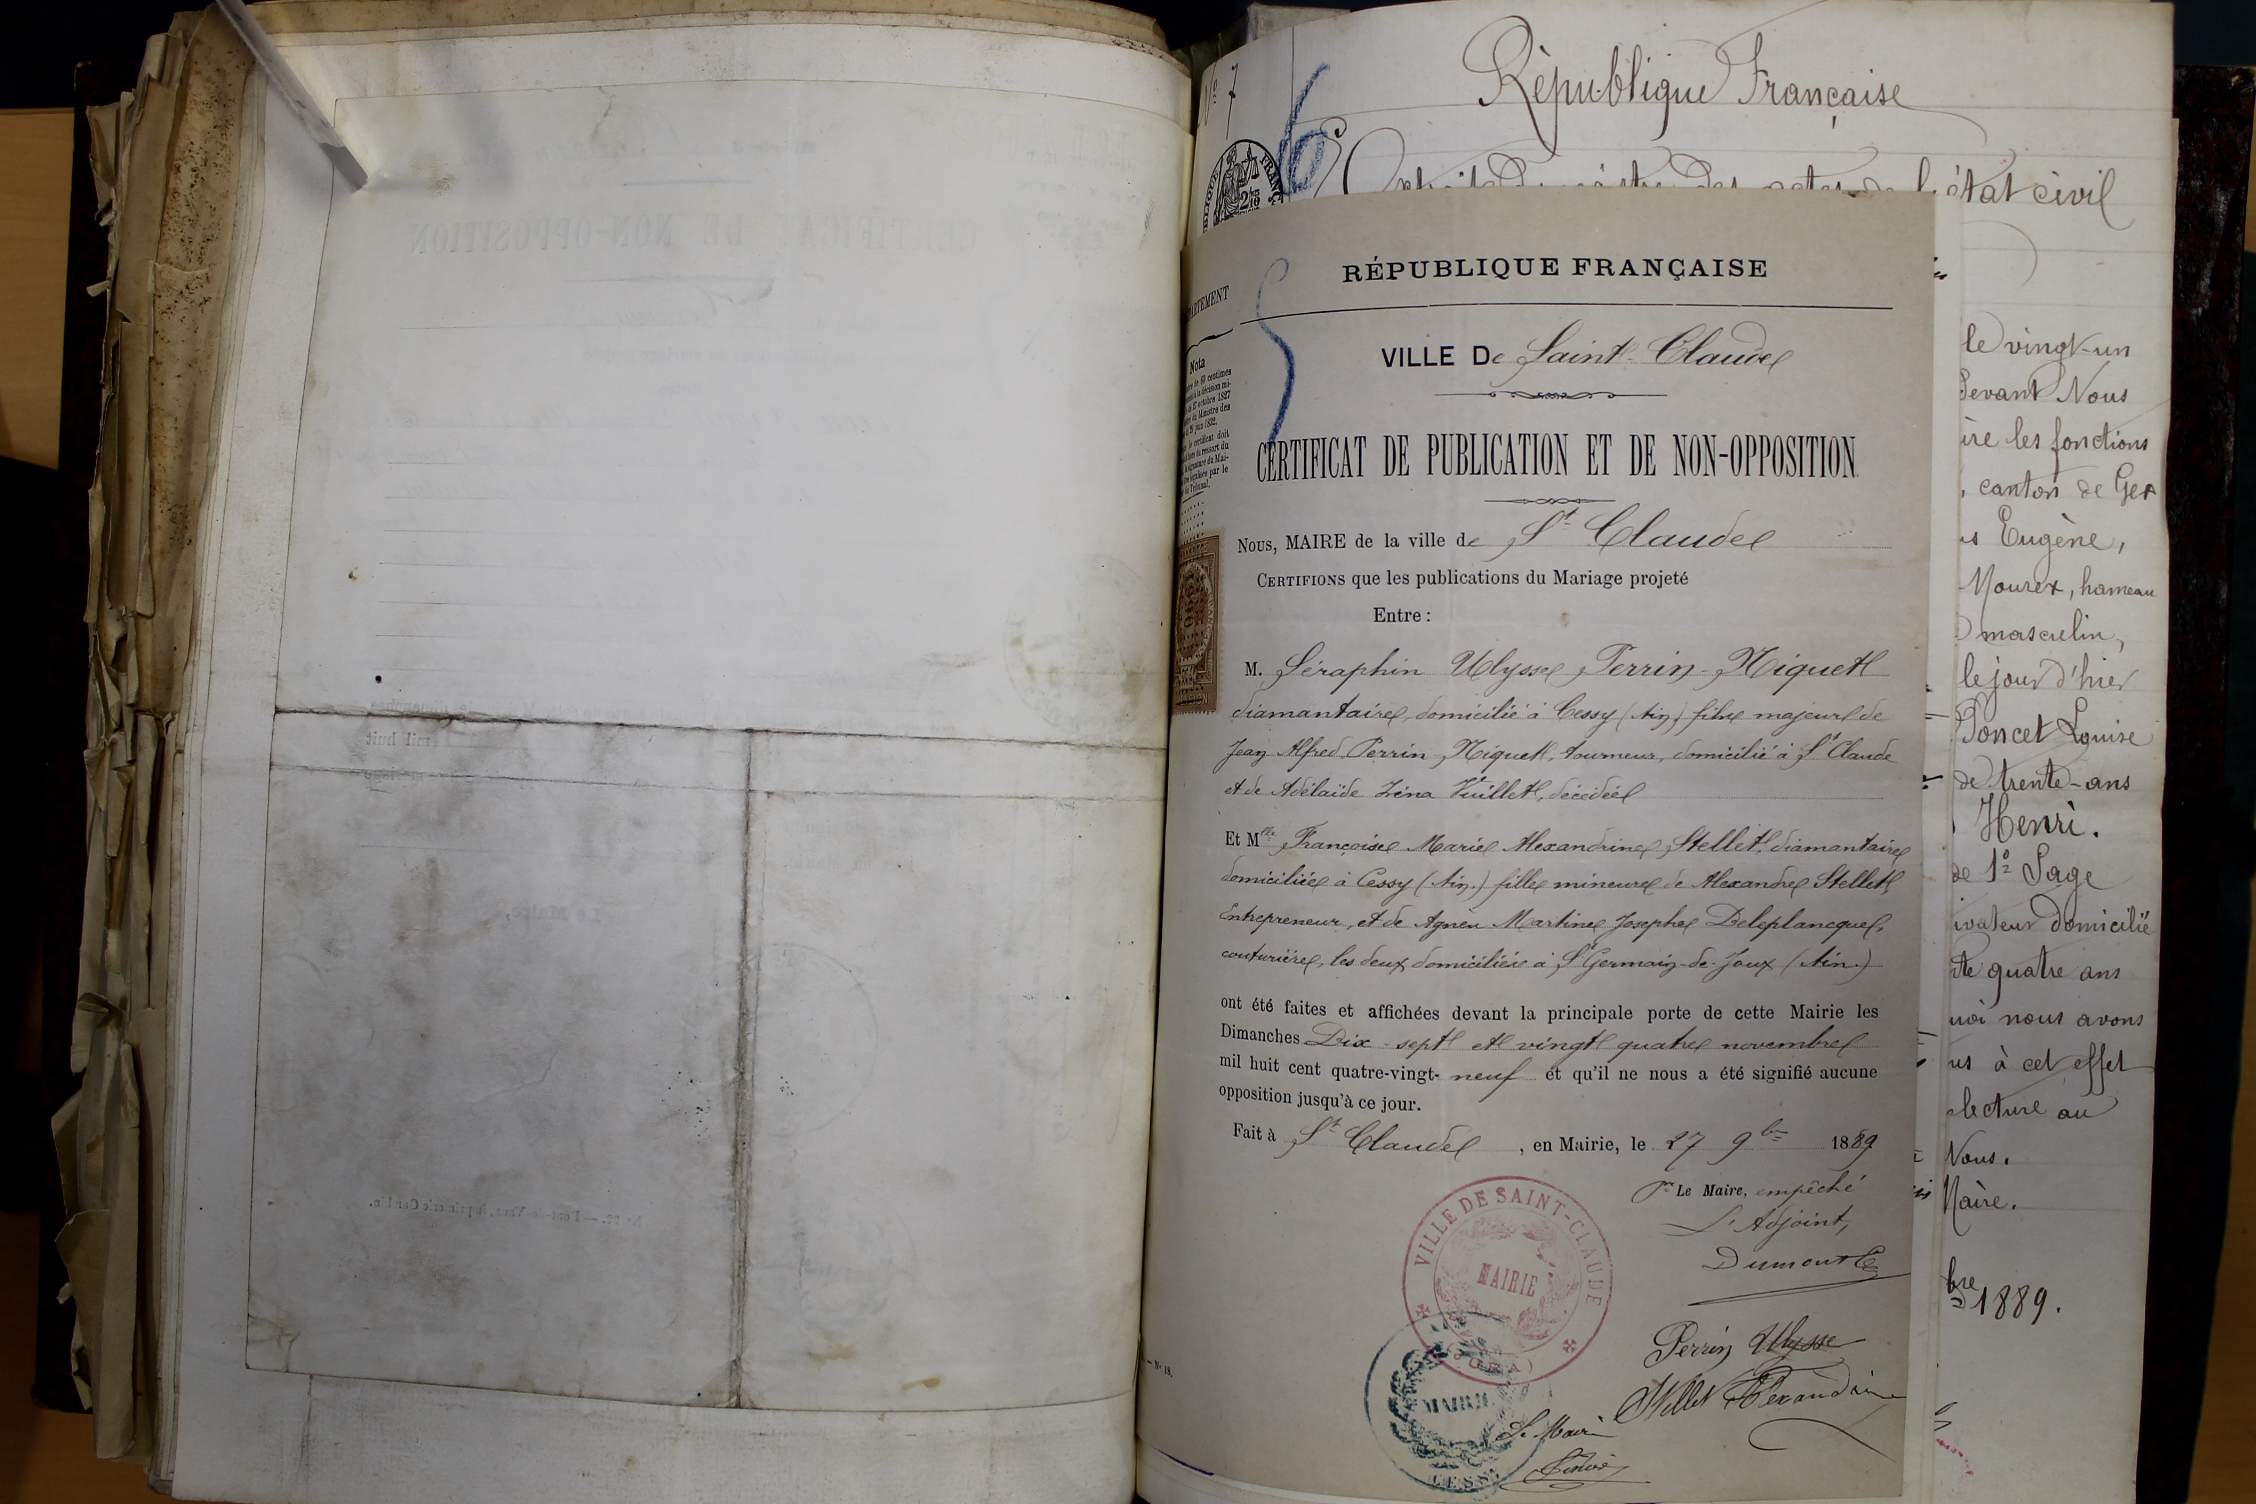 République Française
l'état civil
RÉPUBLIQUE FRANÇAISE
VILLE De Saint-Claude
CERTIFICAT DE PUBLICATION ET DE NON-OPPOSITION
Nous, MAIRE de la ville de St Claude
CERTIFIONS que les publications du Mariage projeté
Entre :
M. Séraphin Ulysse Perrin-Niquet
diamantaire, domicilié à Cessy (Ain) fils majeur de
Jean Alfred Perrin-Niquet, tourneur, domicilié à St Claude
et de Adélaïde Zéna Vuillet, décédée
Et Mlle Françoise Marie Alexandrine Stellet, diamantaire
domiciliée à Cessy (Ain.) fille mineure de Alexandre Stellet,
Entrepreneur, et de Agnès Martine Josephe Deleplancque,
couturière, les deux domiciliés à St Germain-de-Joux (Ain.)
ont été faites et affichées devant la principale porte de cette Mairie les
Dimanches Dix-sept et vingt quatre novembre
mil huit cent quatre-vingt- neuf et qu'il ne nous a été signifié aucune
opposition jusqu'à ce jour.
Fait à St Claude, en Mairie, le 27 9bre 1889
Pr Le Maire, empêché
L'Adjoint,
Dumont
VILLE DE SAINT-CLAUDE
MAIRIE
(JURA)
Perrin Ulysse
Stellet Alexandrine
MAIRIE
Le Maire
le vingt-un
Devant Nous
ire les fonctions
, canton de Gex
s Eugène,
Mourex, hameau
masculin,
le jour d'hier
Poncet Louise
de trente-ans
Henri.
de 1º Sage
ivateur domicilié
te quatre ans
uoi nous avons
us à cet effet
lecture au
Nous.
Maire.
bre 1889.
ARTEMENT
Nota
CERTIFICAT DE NON-OPPOSITION